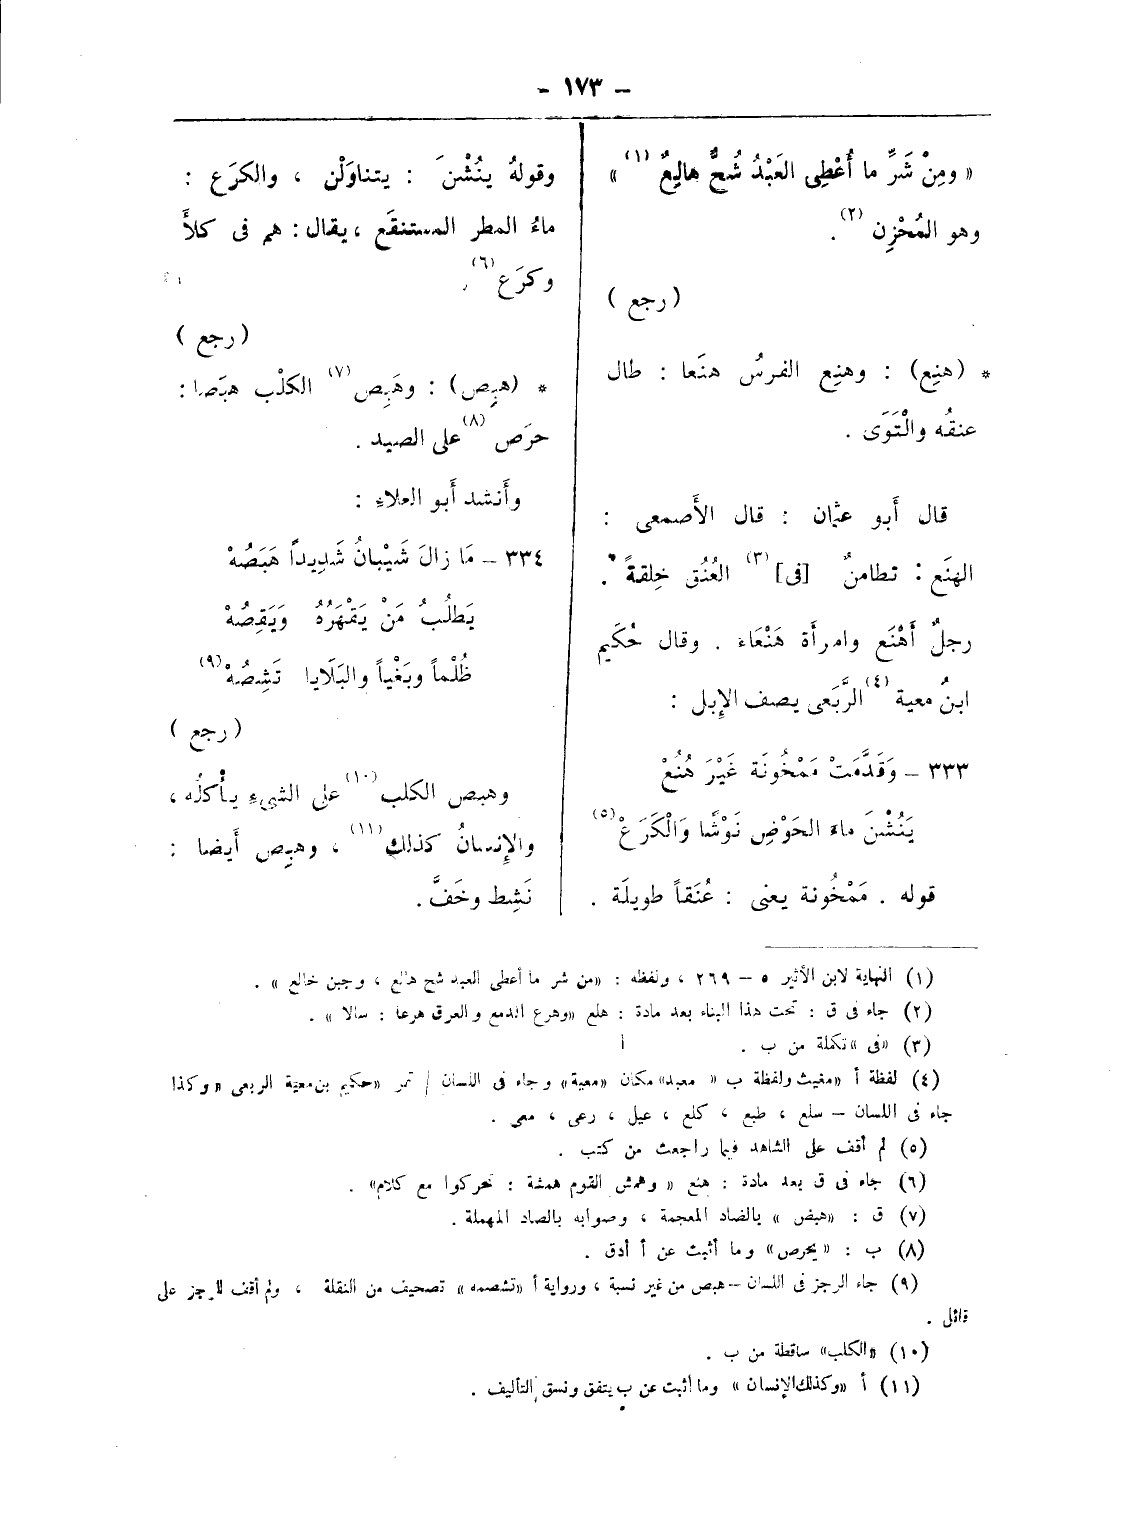 – ١٧٣ –
« ومِنْ شَرِّ ما أُعْطِى العَبْدُ شُحٌّ هالِعٌ (١) »
وهو المُحْزِن (٢) .
( رجع )
* (هنِع) : وهنِع الفرسُ هنَعا : طال
عنقُه والْتَوَى .
قال أَبو عثمان : قال الأَصمعى :
الهنَع : تطامنٌ [فى] (٣) العُنُق خِلقةً .
رجلٌ أَهْنَع وامرأَة هَنْعَاءَ . وقال حُكَيم
ابنُ معية (٤) الرَّبَعى يصف الإِبل :
٣٣٣ – وَقَدَّمَتْ مَمْخُونَة غَيْرَ هُنُعْ
يَنُشْنَ ماءَ الحَوْضِ نَوْشًا وَالْكَرَعْ (٥)
قوله . مَمْخُونة يعنى : عُنَقاً طويلَة .
وقولهُ ينُشْنَ : يتناوَلْن ، والكرَع :
ماءُ المطر المستنقَع ، يقال : هم فى كلأَ
وكرَع (٦) .
( رجع )
* (هبِص) : وهَبِص (٧) الكلْب هبَصا :
حرَص (٨) على الصيد .
وأَنشد أَبو العلاءِ :
٣٣٤ – مَا زالَ شَيْبانُ شَدِيداً هَبَصُهْ
يَطلُبُ مَنْ يَقْهَرُهُ وَيَقِصُهْ
ظُلْماً وبَغْياً والبَلَايا تَشِصُهْ (٩)
( رجع )
وهبص الكلب (١٠) على الشىءِ يأْكلُه ،
والإِنسانُ كذلك (١١) ، وهبِص أَيضا :
نَشِط وخَفَّ .
(١) النهاية لابن الأثير ٥ – ٢٦٩ ، ولفظه : «من شر ما أعطى العبد شح هالع ، وجبن خالع » .
(٢) جاء فى ق : تحت هذا البناء بعد مادة : هلع «وهرع الدمع والعرق هرعا : سالا » .
(٣) «فى » تكملة من ب .
(٤) لفظة أ «مغيث ولفظة ب « معبد» مكان «معية» وجاء فى اللسان / تمر «حكيم بن معية الربعى » وكذا
جاء فى اللسان – سلع ، طبع ، كلع ، عيل ، رعى ، معى .
(٥) لم أقف على الشاهد فيما راجعت من كتب .
(٦) جاء فى ق بعد مادة : هنع « وهمش القوم همشة : تحركوا مع كلام» .
(٧) ق : «هبض » بالضاد المعجمة ، وصوابه بالصاد المهملة .
(٨) ب : « يحرص» وما أثبت عن أ أدق .
(٩) جاء الرجز فى اللسان – هبص من غير نسبة ، ورواية أ «تشصمه » تصحيف من النقلة ، ولم أقف للرجز على
قائل .
(١٠) «الكلب» ساقطة من ب .
(١١) أ «وكذلك الإنسان » وما أثبت عن ب يتفق ونسق التأليف .